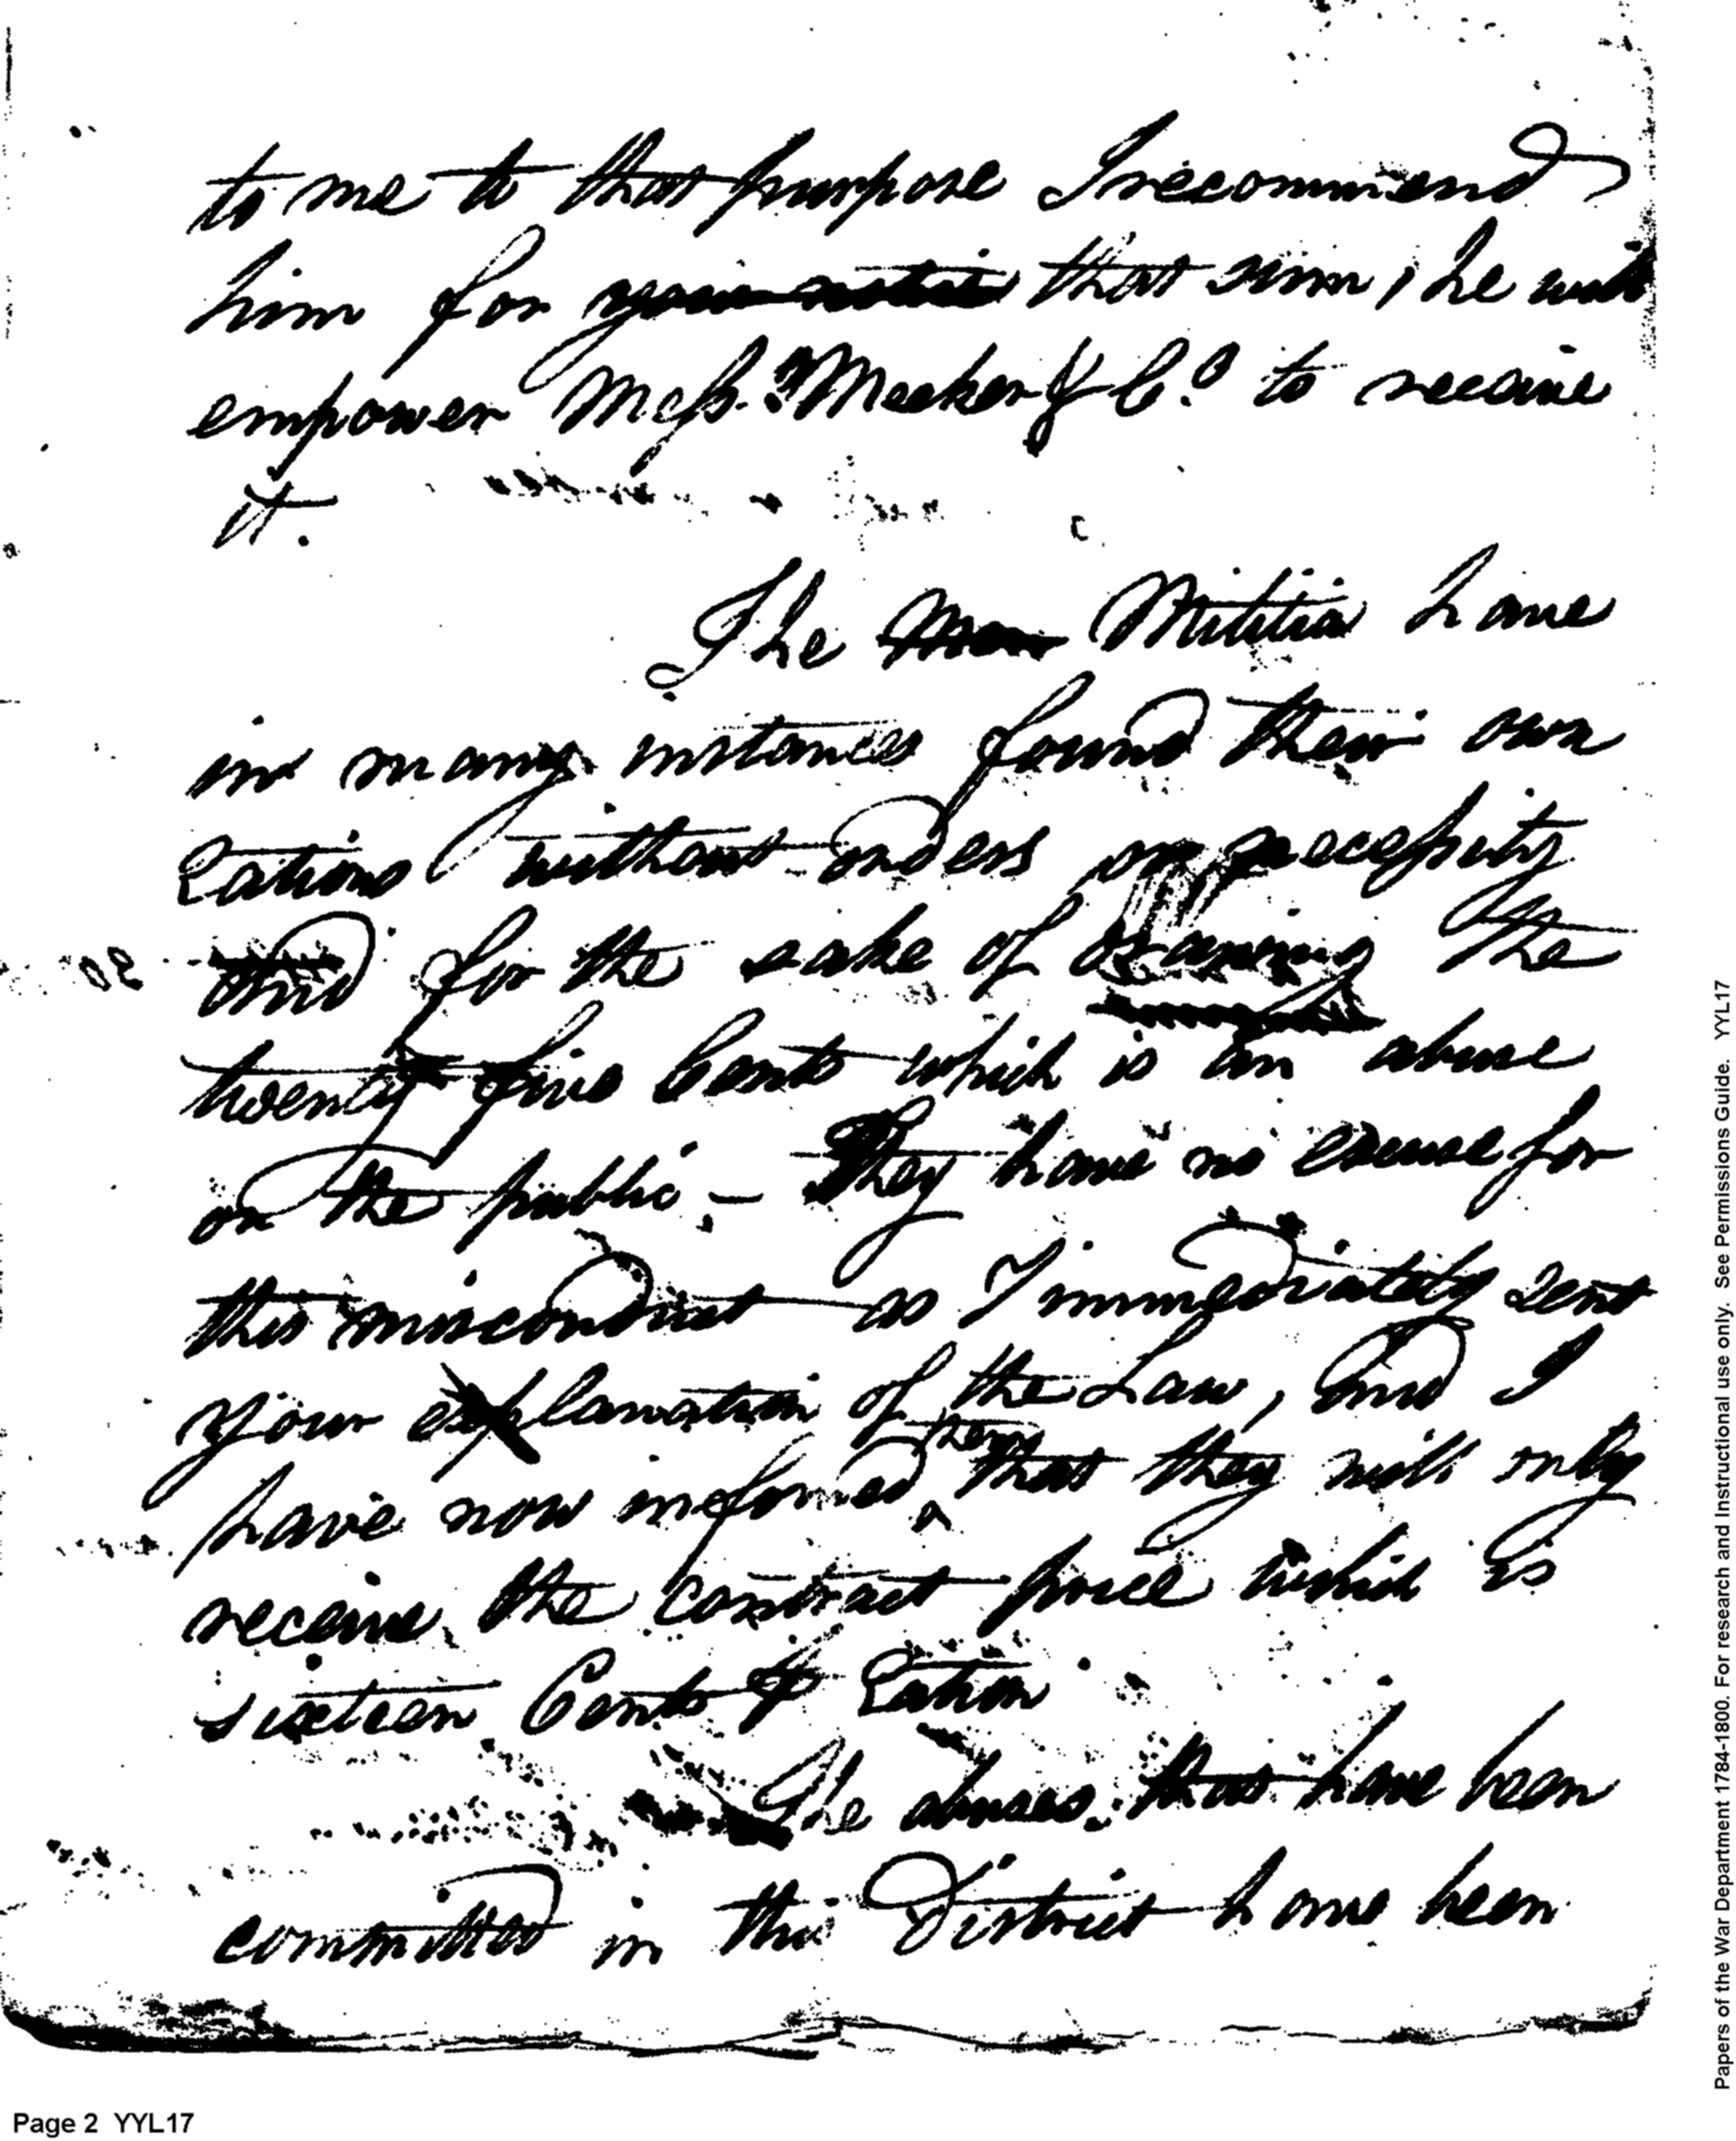 to me to that purpose I recommend
him for your notice that sum, he will
empower Mess.rs Meeker & Co. to receive
it.
The Militia have
in many instances found their own
Rations without orders or necessity
and for the sake of drawing the
twenty five Cents which is an abuse
on the public – They have no excuse for
this misconduct as I immediately sent
your explanation of the Law, and I
have now informed them that they will only
receive the contract price which is
sixteen Cents ⅌ Ration
The abuses that have been
committed in this District have been
Page 2 YYL17
Papers of the War Department 1784-1800. For research and Instructional use only. See Permissions Guide. YYL17